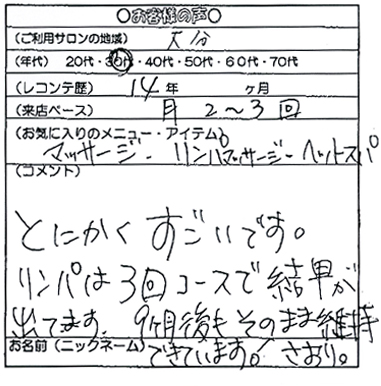 ○お客様の声○
(ご利用サロンの地域) 大分
(年代) 20代・30代・40代・50代・60代・70代
(レコンテ歴) 14 年 ヶ月
(来店ペース) 月 2〜3回
(お気に入りのメニュー・アイテム)
マッサージ・リンパマッサージ・ヘッドスパ
(コメント)
とにかく すごいです。
リンパは 3回コースで 結果が
出てます。 9ヶ月後も そのまま維持
できています。
お名前 (ニックネーム) さおり。